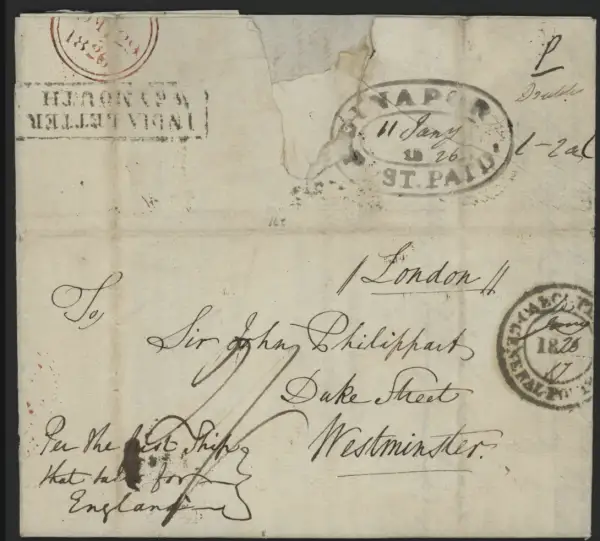 1826
INDIA LETTER
WEYMOUTH
DINAPORE
11 Jany
1826
POST PAID
P
Double
London
To,
Sir John Philippart
Duke Street
Westminster.
Per the first Ship
that sails for
England
1826
17